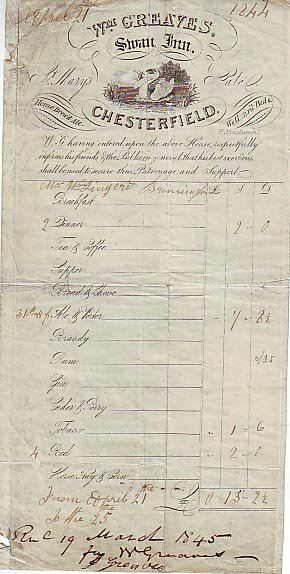 April 21st 1844
Wm GREAVES,
Swan Inn,
St. Mary's Gate
CHESTERFIELD.
Home Brewed Ale. Well Aired Beds.
W.G. having entered upon the above House, respectfully
informs his friends & the Public in general that his best exertions
shall be used to secure their Patronage and Support.
Mr Brimington £ S D
Breakfast
2 Dinner 2 - 0
Tea & Coffee
Supper
Bread & Cheese
Ale & Porter - 7 - 8½
Brandy
Rum
Gin
Cider & Perry
Tobacco - 1 - 6
4 Bed - 2 - 0
Horse Hay & Corn
From April 21st £ 0 - 13 - 2½
to the 25th
19 March 1845
Wm Greaves
Greaves